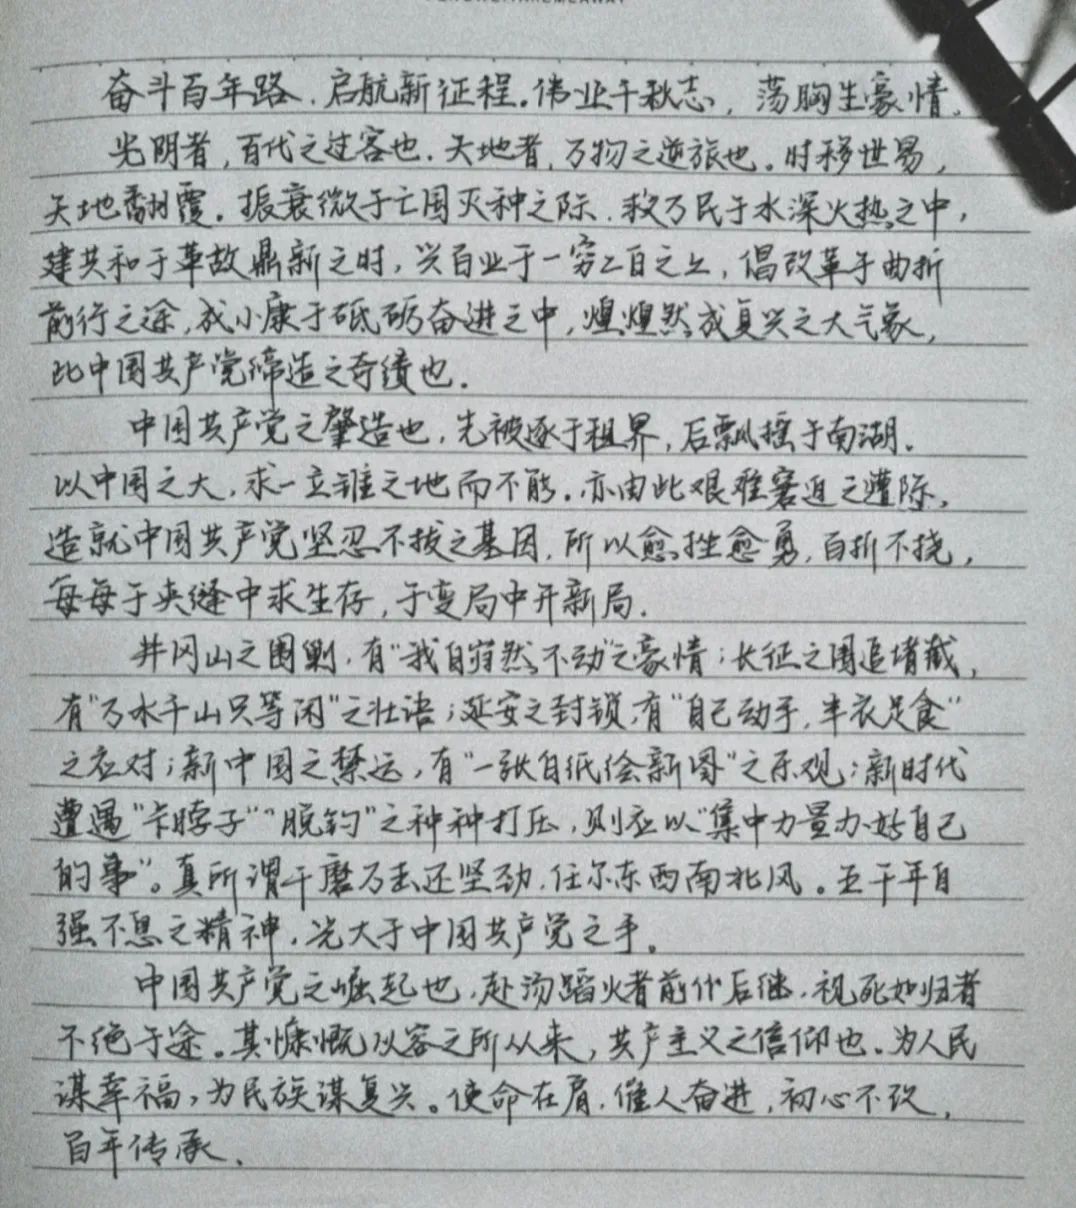 奋斗百年路，启航新征程。伟业千秋志，荡胸生豪情。
光阴者，百代之过客也，天地者，万物之逆旅也。时移世易，
天地翻覆。振衰微于亡国灭种之际，救万民于水深火热之中，
建共和于革故鼎新之时，兴百业于一穷二白之上，倡改革于曲折
前行之途，成小康于砥砺奋进之中，煌煌然成复兴之大气象，
此中国共产党缔造之奇绩也。
中国共产党之肇造也，先被逐于租界，后飘摇于南湖。
以中国之大，求一立锥之地而不能。亦由此艰难窘迫之遭际，
造就中国共产党坚忍不拔之基因，所以愈挫愈勇，百折不挠，
每每于夹缝中求生存，于变局中开新局.
井冈山之围剿，有"我自岿然不动"之豪情；长征之围追堵截，
有"万水千山只等闲"之壮语；延安之封锁，有"自己动手，丰衣足食"
之应对；新中国之禁运，有"一张白纸绘新图"之乐观；新时代
遭遇"卡脖子""脱钩"之种种打压，则应以"集中力量办好自己
的事"。真所谓千磨万击还坚劲，任尔东西南北风。五千年自
强不息之精神，光大于中国共产党之手。
中国共产党之崛起也，赴汤蹈火者前仆后继，视死如归者
不绝于途。其慷慨从容之所从来，共产主义之信仰也。为人民
谋幸福，为民族谋复兴。使命在肩，催人奋进，初心不改，
百年传承、